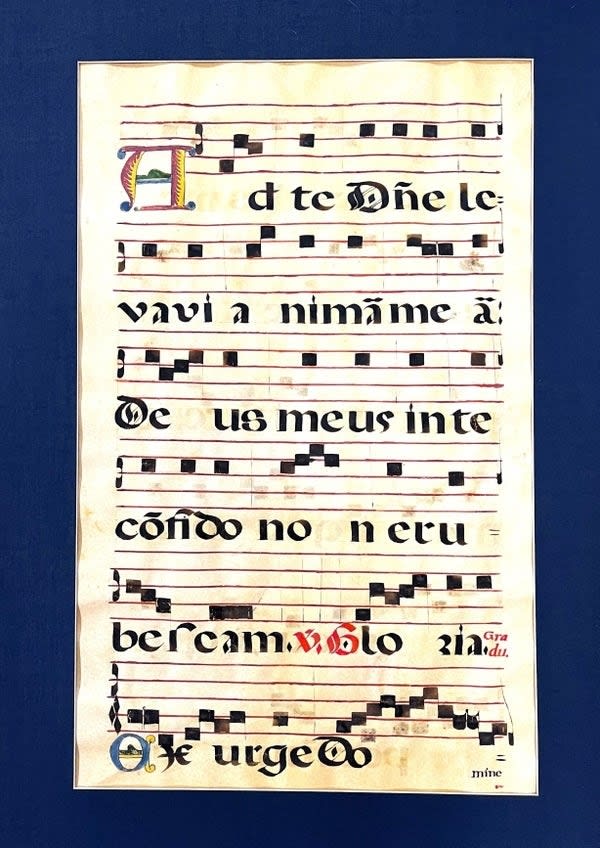 Ad te Dñe le=
vavi a nimã me ã:
De us meus in te
cõfido no n eru =
beſcam. ℣. Glo ria. Gra
du.
Ex urge Do =
mine